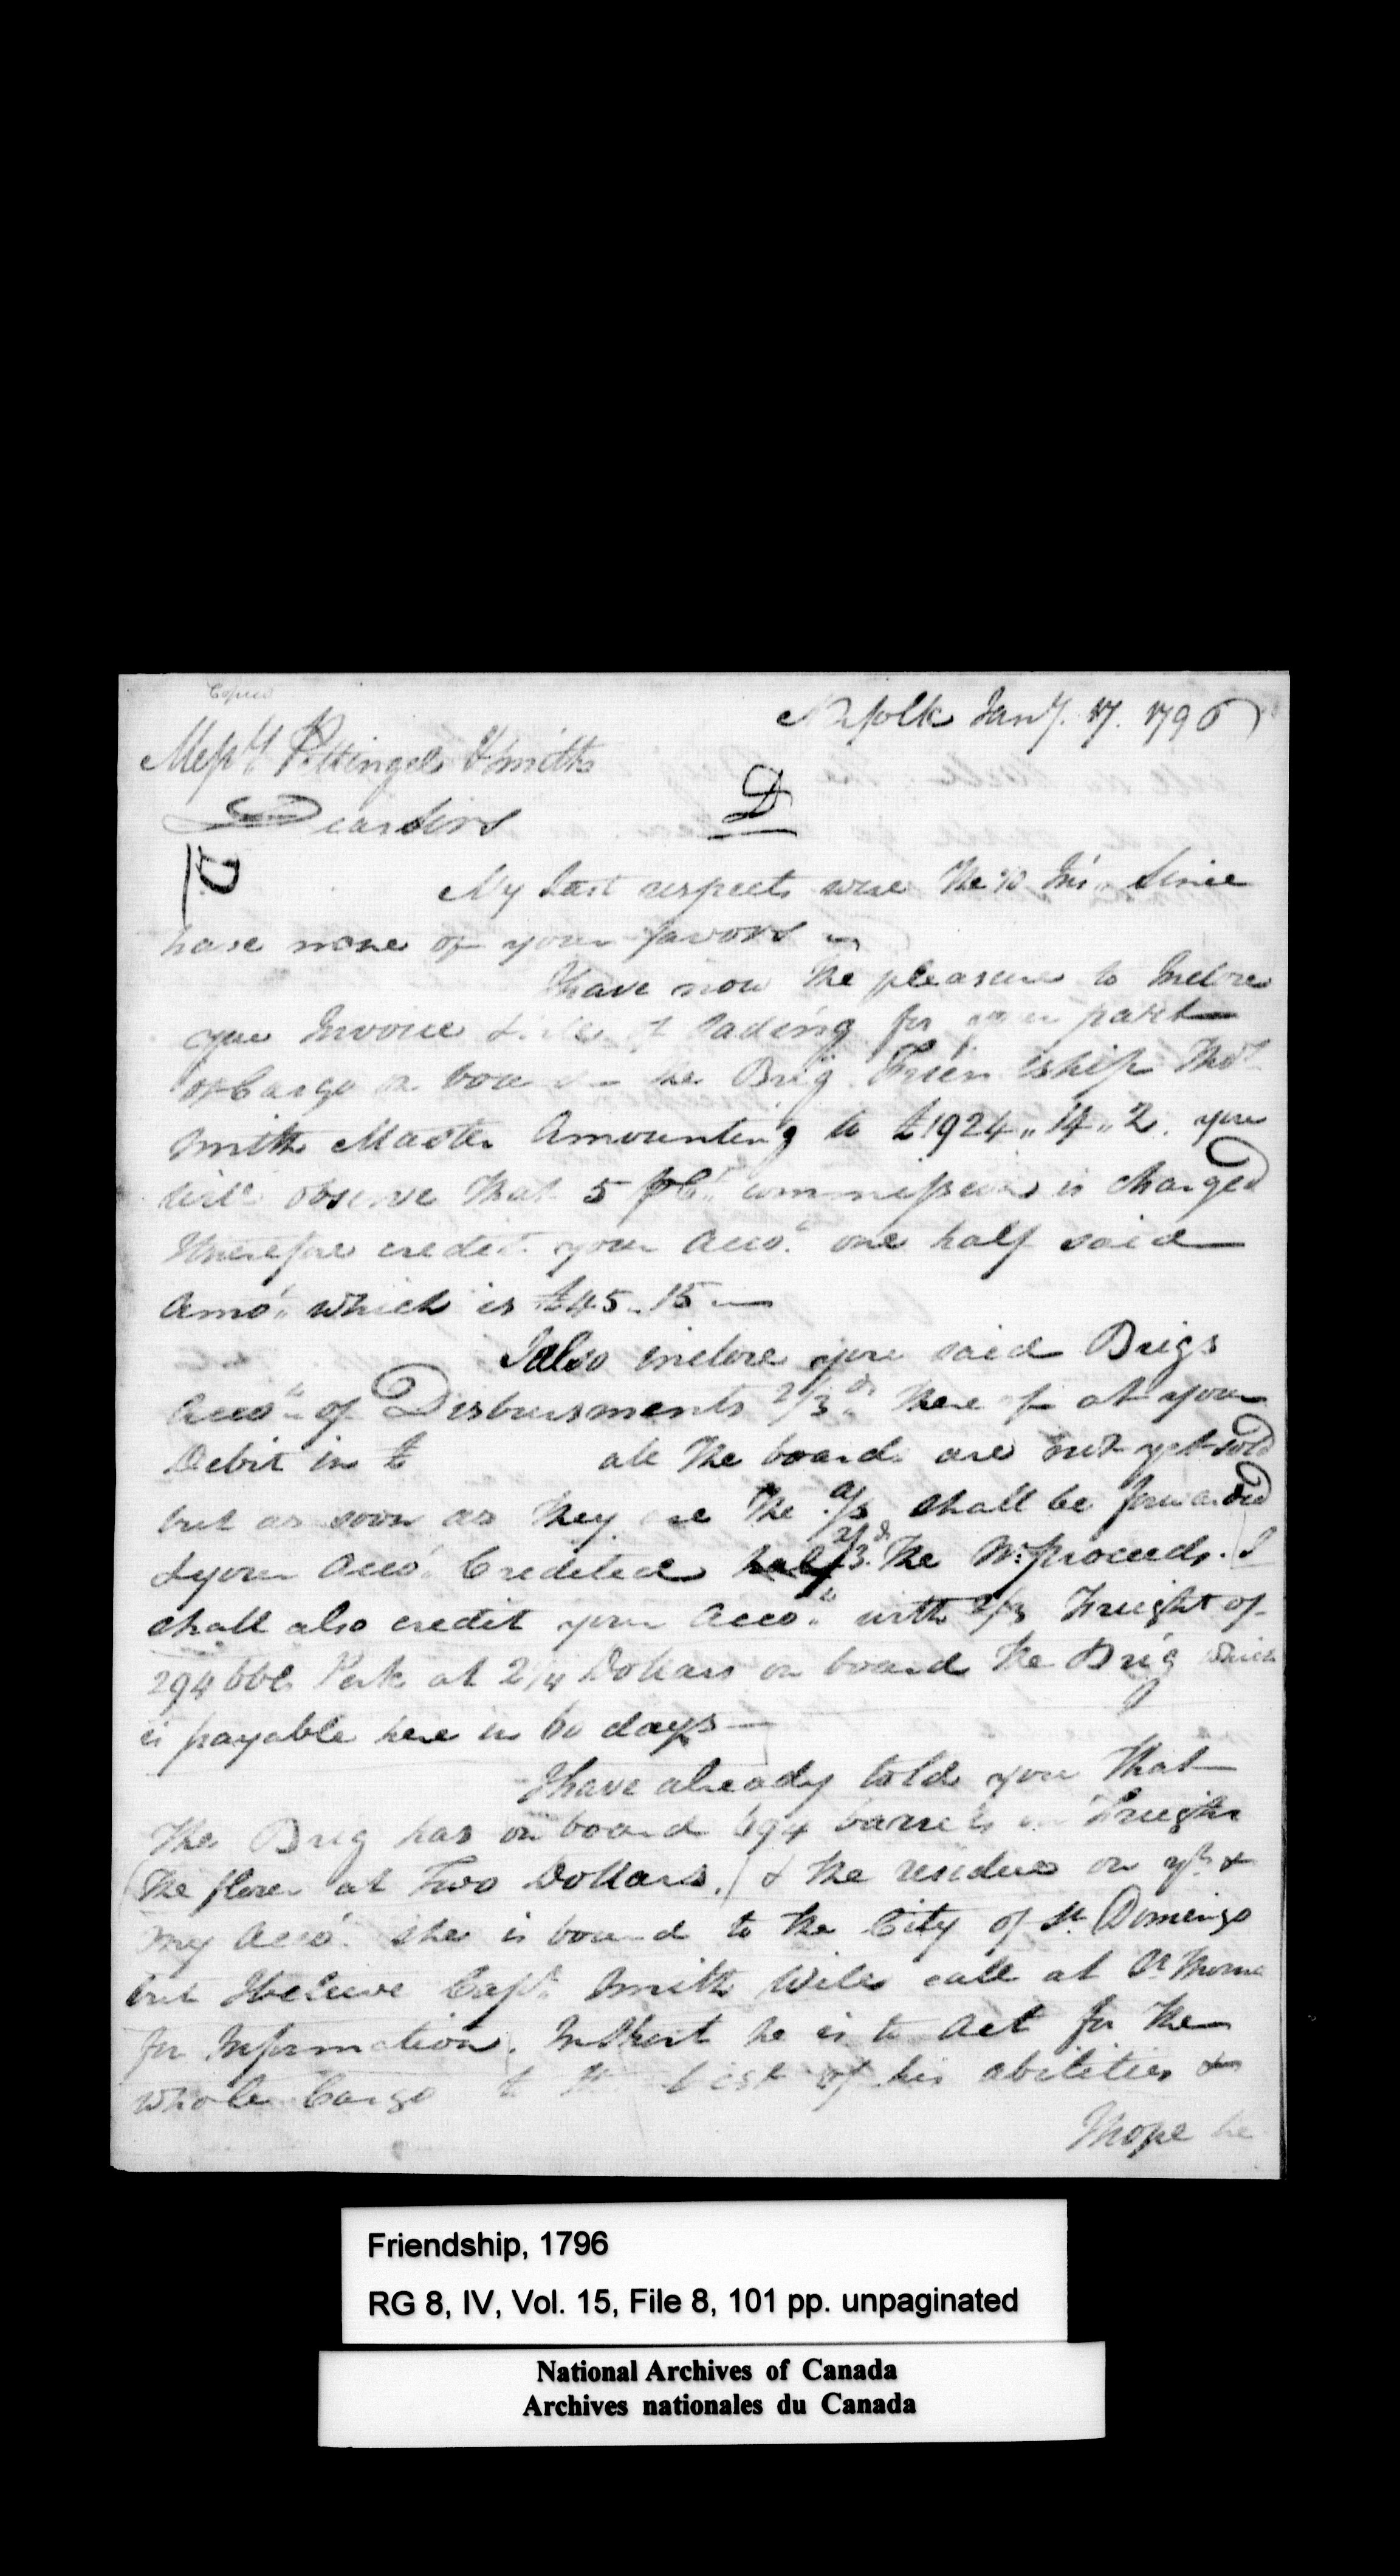 Copied
Norfolk Jany. 17. 1796
Messrs. Pettingel & Smith
Dear Sirs
D
D
My last respects were the 10 Ins. Since
have none of your favors
I have now the pleasure to Inclose
you Invoice & of Lading for your part
of Cargo on board the Brig Friendship Thos.
Smith Master Amounting to £1924 " 14 " 2. you
will observe that 5 pCt. commission is charged
I therefore credit your Acco. one half said
Amo. which is £45 " 15 —
I also inclose you said Brigs
Acco. of Disbursments 2/3ds. there of at your
Debit in £ all the boards are not yet sold
but as soon as they are the a/s shall be forwarded
& your Acco. Credited half 2/3ds. the Nt. proceeds. I
shall also credit your Acco. with 2/3 Freight of
294 bbls Pork at 2 1/4 Dollars on board the Brig which
is payable here in 60 days —
I have already told you that
The Brig has on board 694 barrels on Freight
(The flour at Two Dollars.) & the residue on yr. &
my Acco. she is bound to the City of St. Domingo
but I beleive Capt. Smith Will call at St. Thoma
for Information. In Short he is to Act for the
whole Cargo to the best of his abilities &
I hope he
Friendship, 1796
RG 8, IV, Vol. 15, File 8, 101 pp. unpaginated
National Archives of Canada
Archives nationales du Canada